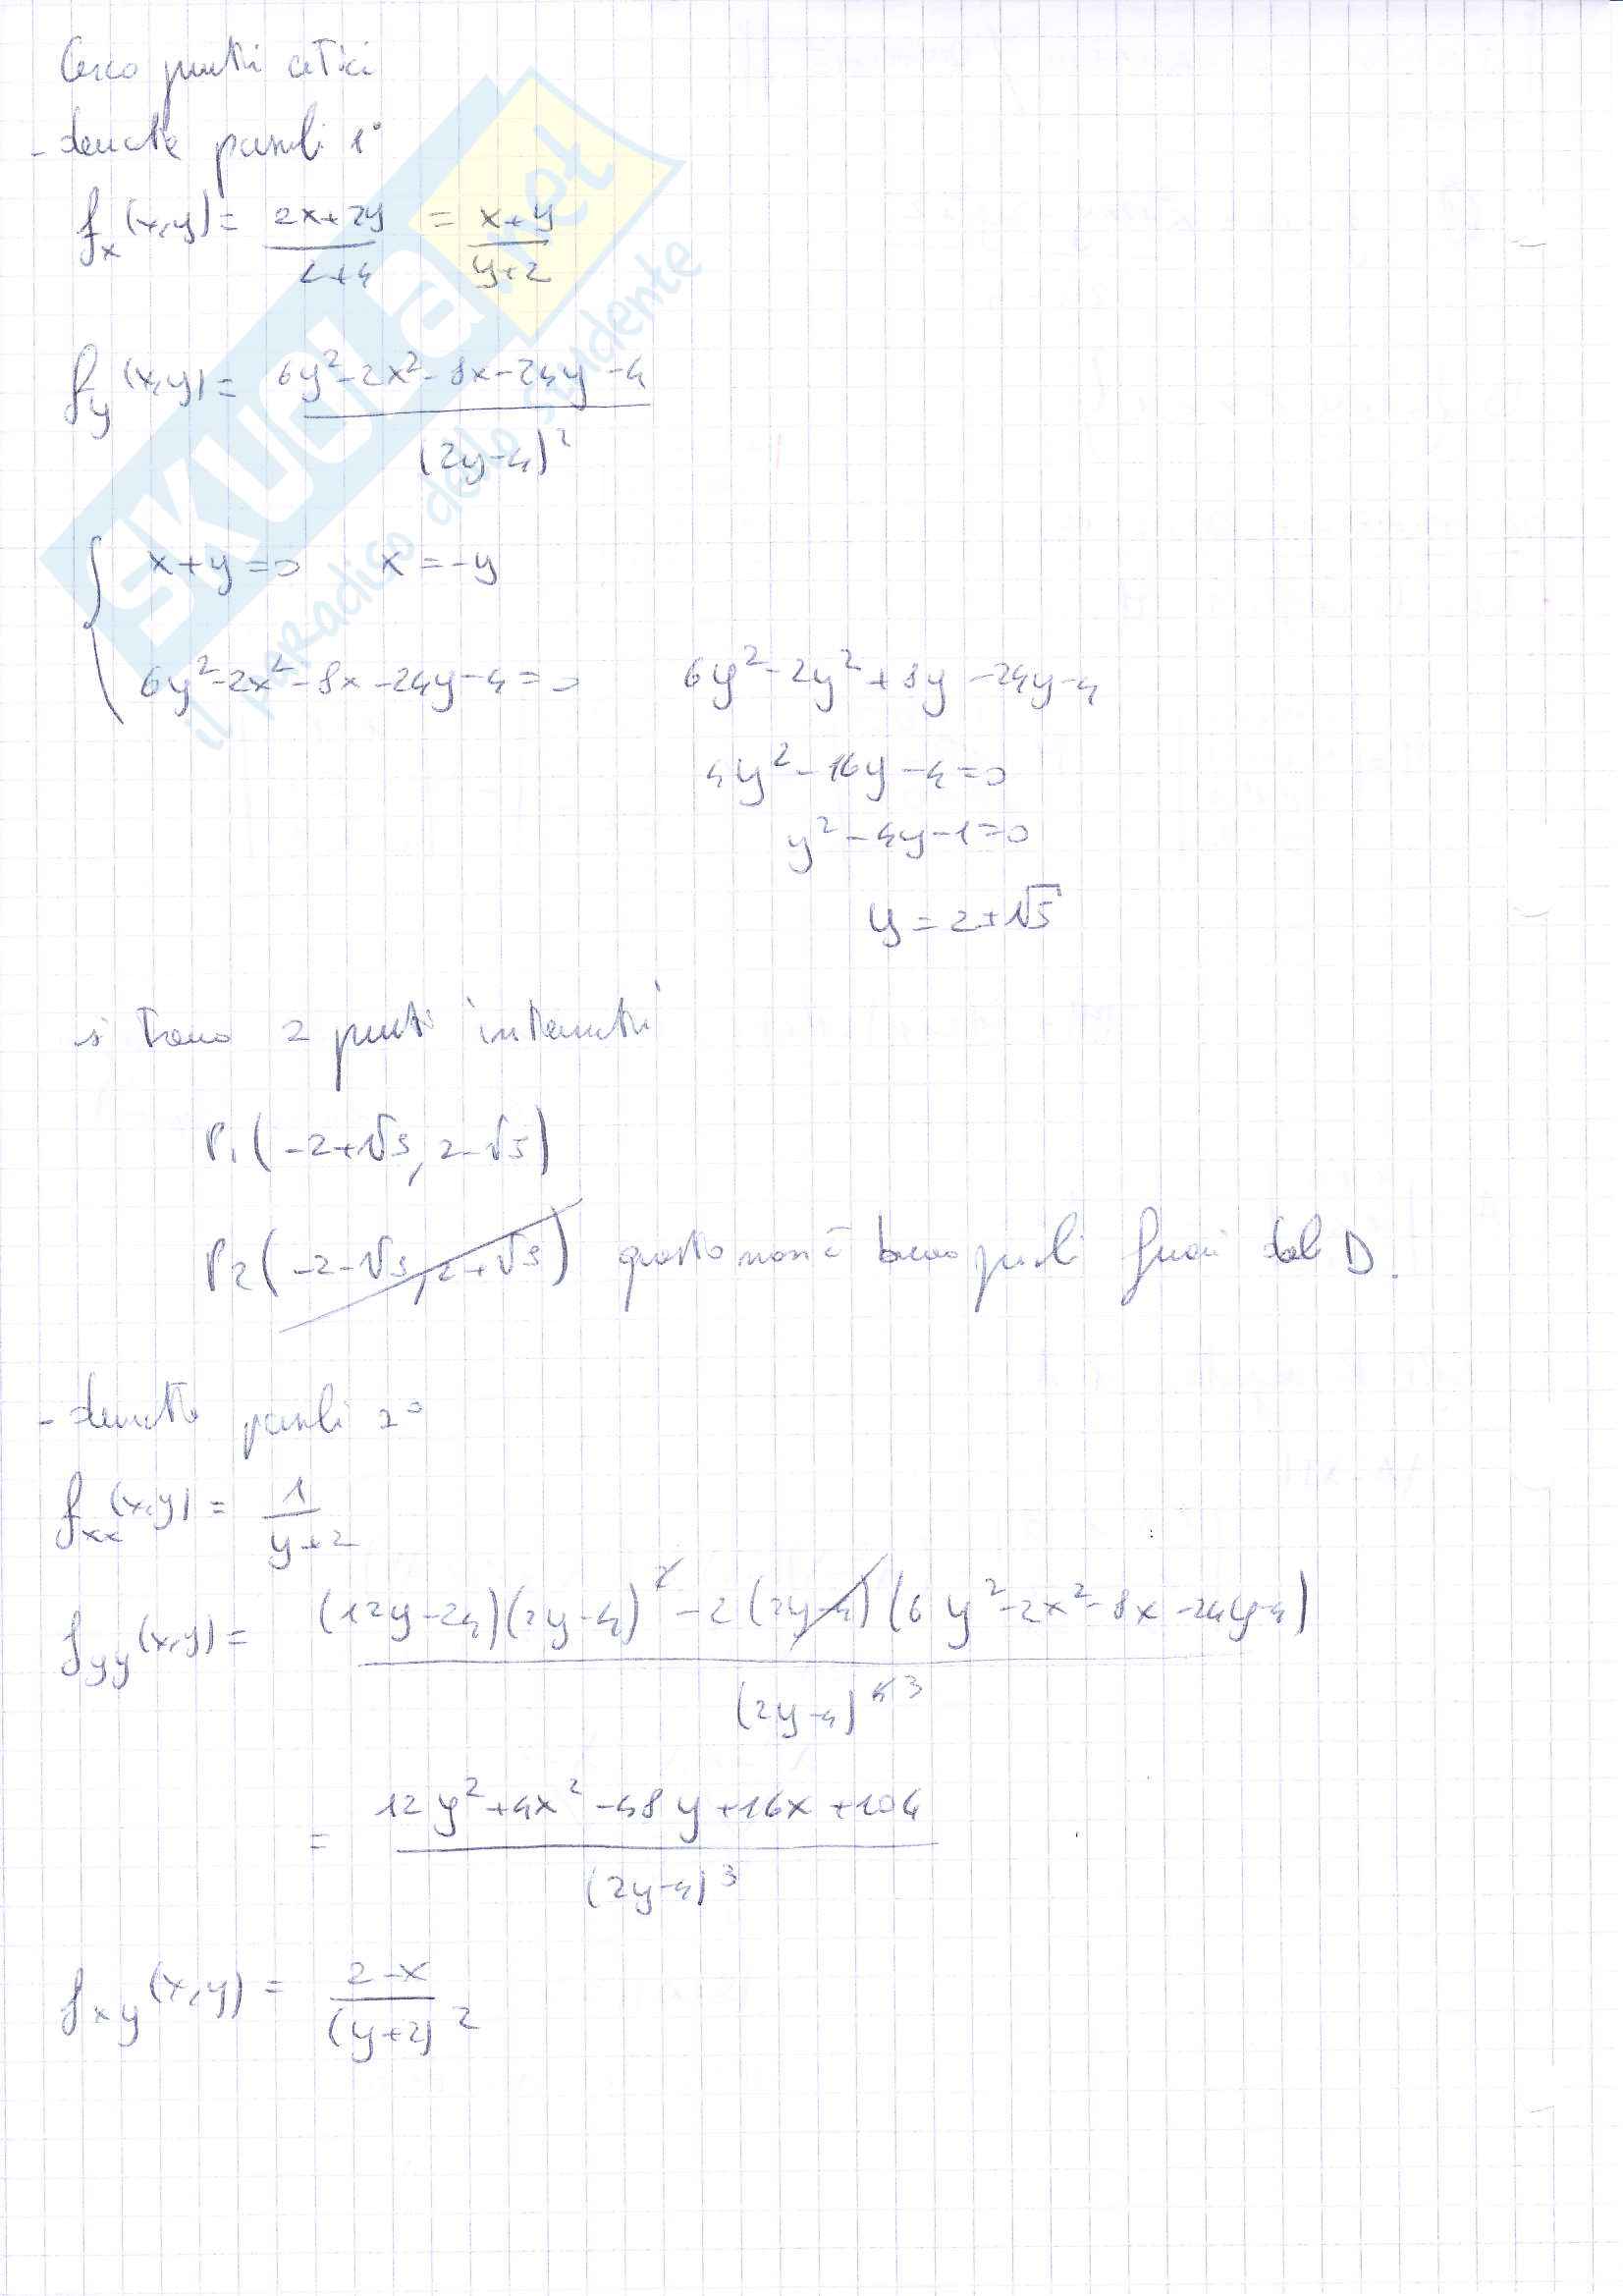 Cerco punti critici
- derivate parziali 1°
fx(x,y) = 2x+2y / 2+4 = x+y / y+2
fy(x,y) = 6y²-2x²-8x-24y-4 / (2y-4)²
{ x+y=0 x=-y
6y²-2x²-8x-24y-4=0 6y²-2y²+8y-24y-4
4y²-16y-4=0
y²-4y-1=0
y = 2±√5
si trovano 2 punti
P1(-2+√5, 2-√5)
P2(-2-√5, 2+√5) questo non è fuori dal D.
- derivate parziali 2°
fxx(x,y) = 1 / y+2
fyy(x,y) = (12y-24)(2y-4)² -2(2y-4)(6y²-2x²-8x-24y-4) / (2y-4)⁴ ³
= 12y²+4x²-48y+16x+104 / (2y-4)³
fxy(x,y) = 2-x / (y+2)²
SKUOLA.net
il paradiso dello studente